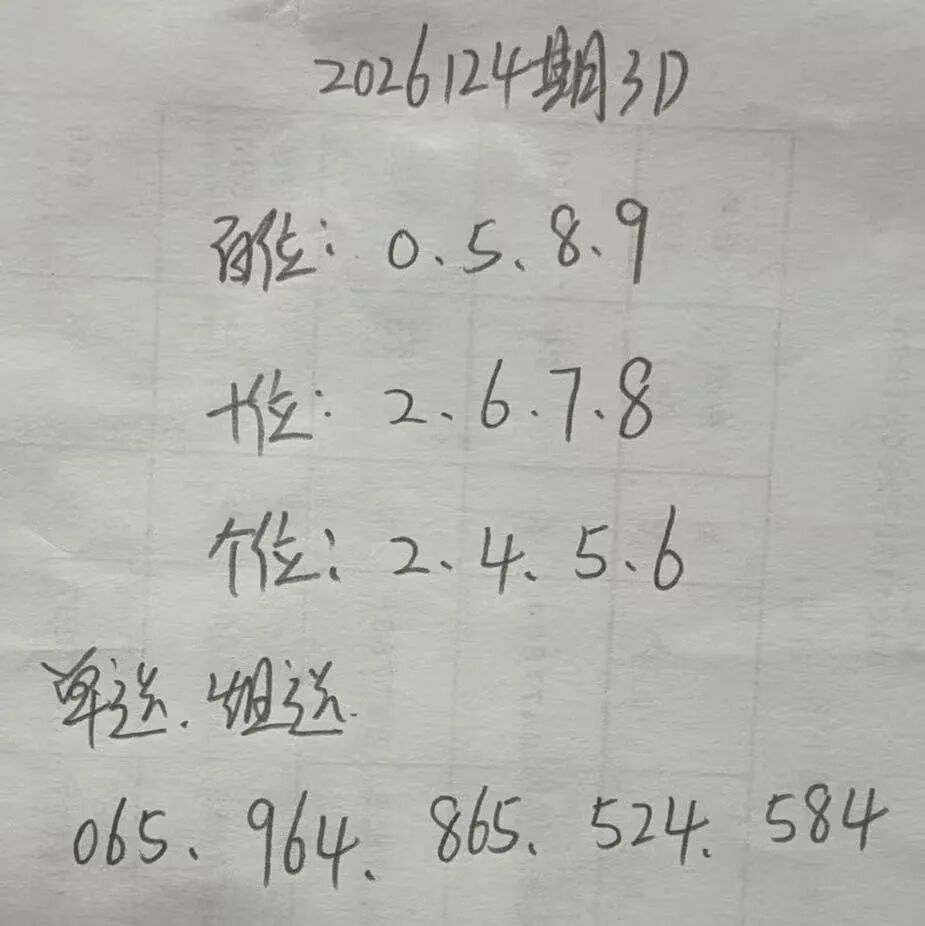 2026124期3D
百位：0、5、8、9
十位：2、6、7、8
个位：2、4、5、6
单选、组选
065、964、865、524、584